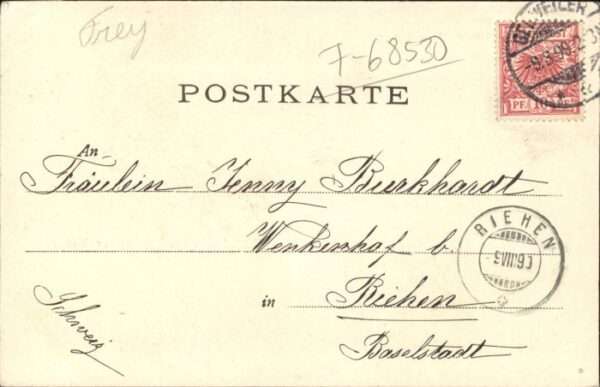 Frey
7-68530
POSTKARTE
WEILER
-9.8.99.
PF. 10
An
Fräulein Jenny Burkhardt
Wenkenhof b.
RIEHEN
9 VIII 99
in Riehen
Schweiz
Baselstadt